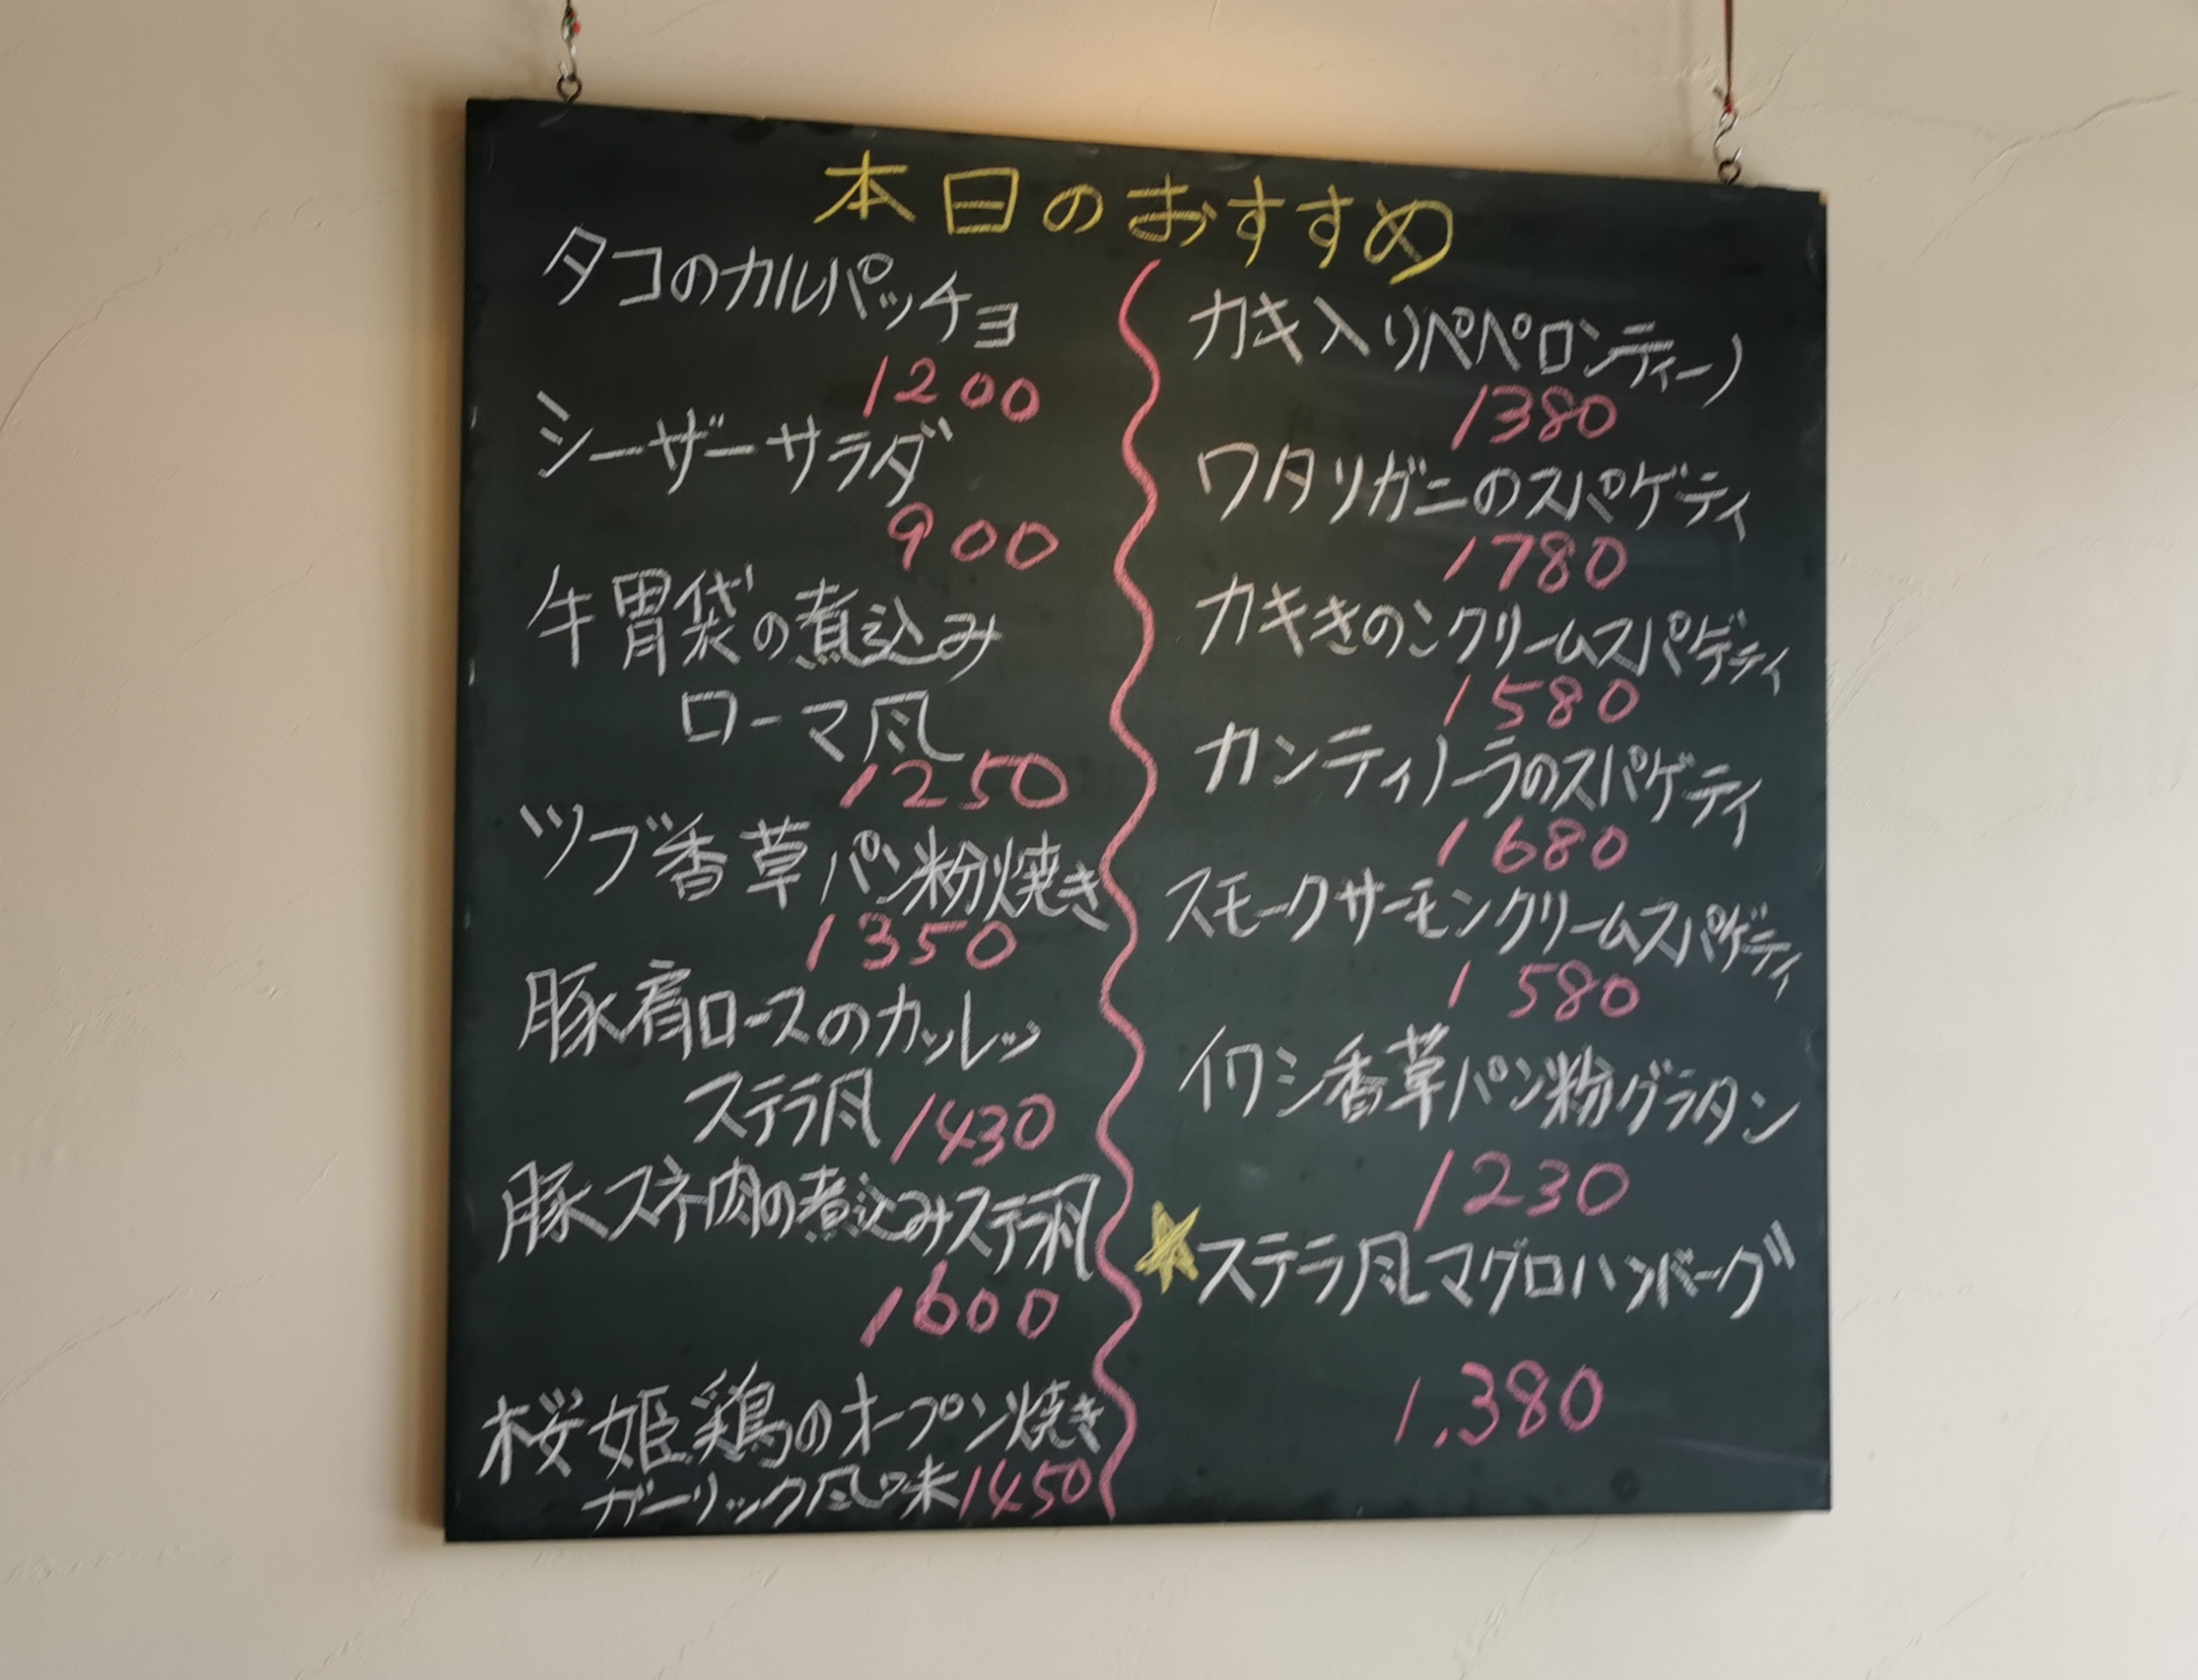 本日のおすすめ
タコのカルパッチョ
1200
シーザーサラダ
900
牛胃袋の煮込み
ローマ風
1250
ツブ香草パン粉焼き
1350
豚肩ロースのカツレツ
ステラ風 1430
豚スネ肉の煮込みステラ風
1600
桜姫鶏のオーブン焼き
ガーリック風味 1450
カキ入りペペロンティーノ
1380
ワタリガニのスパゲティ
1780
カキきのこクリームスパゲティ
1580
カンティノーラのスパゲティ
1680
スモークサーモンクリームスパゲティ
1580
イワシ香草パン粉グラタン
1230
★ステラ風マグロハンバーグ
1,380